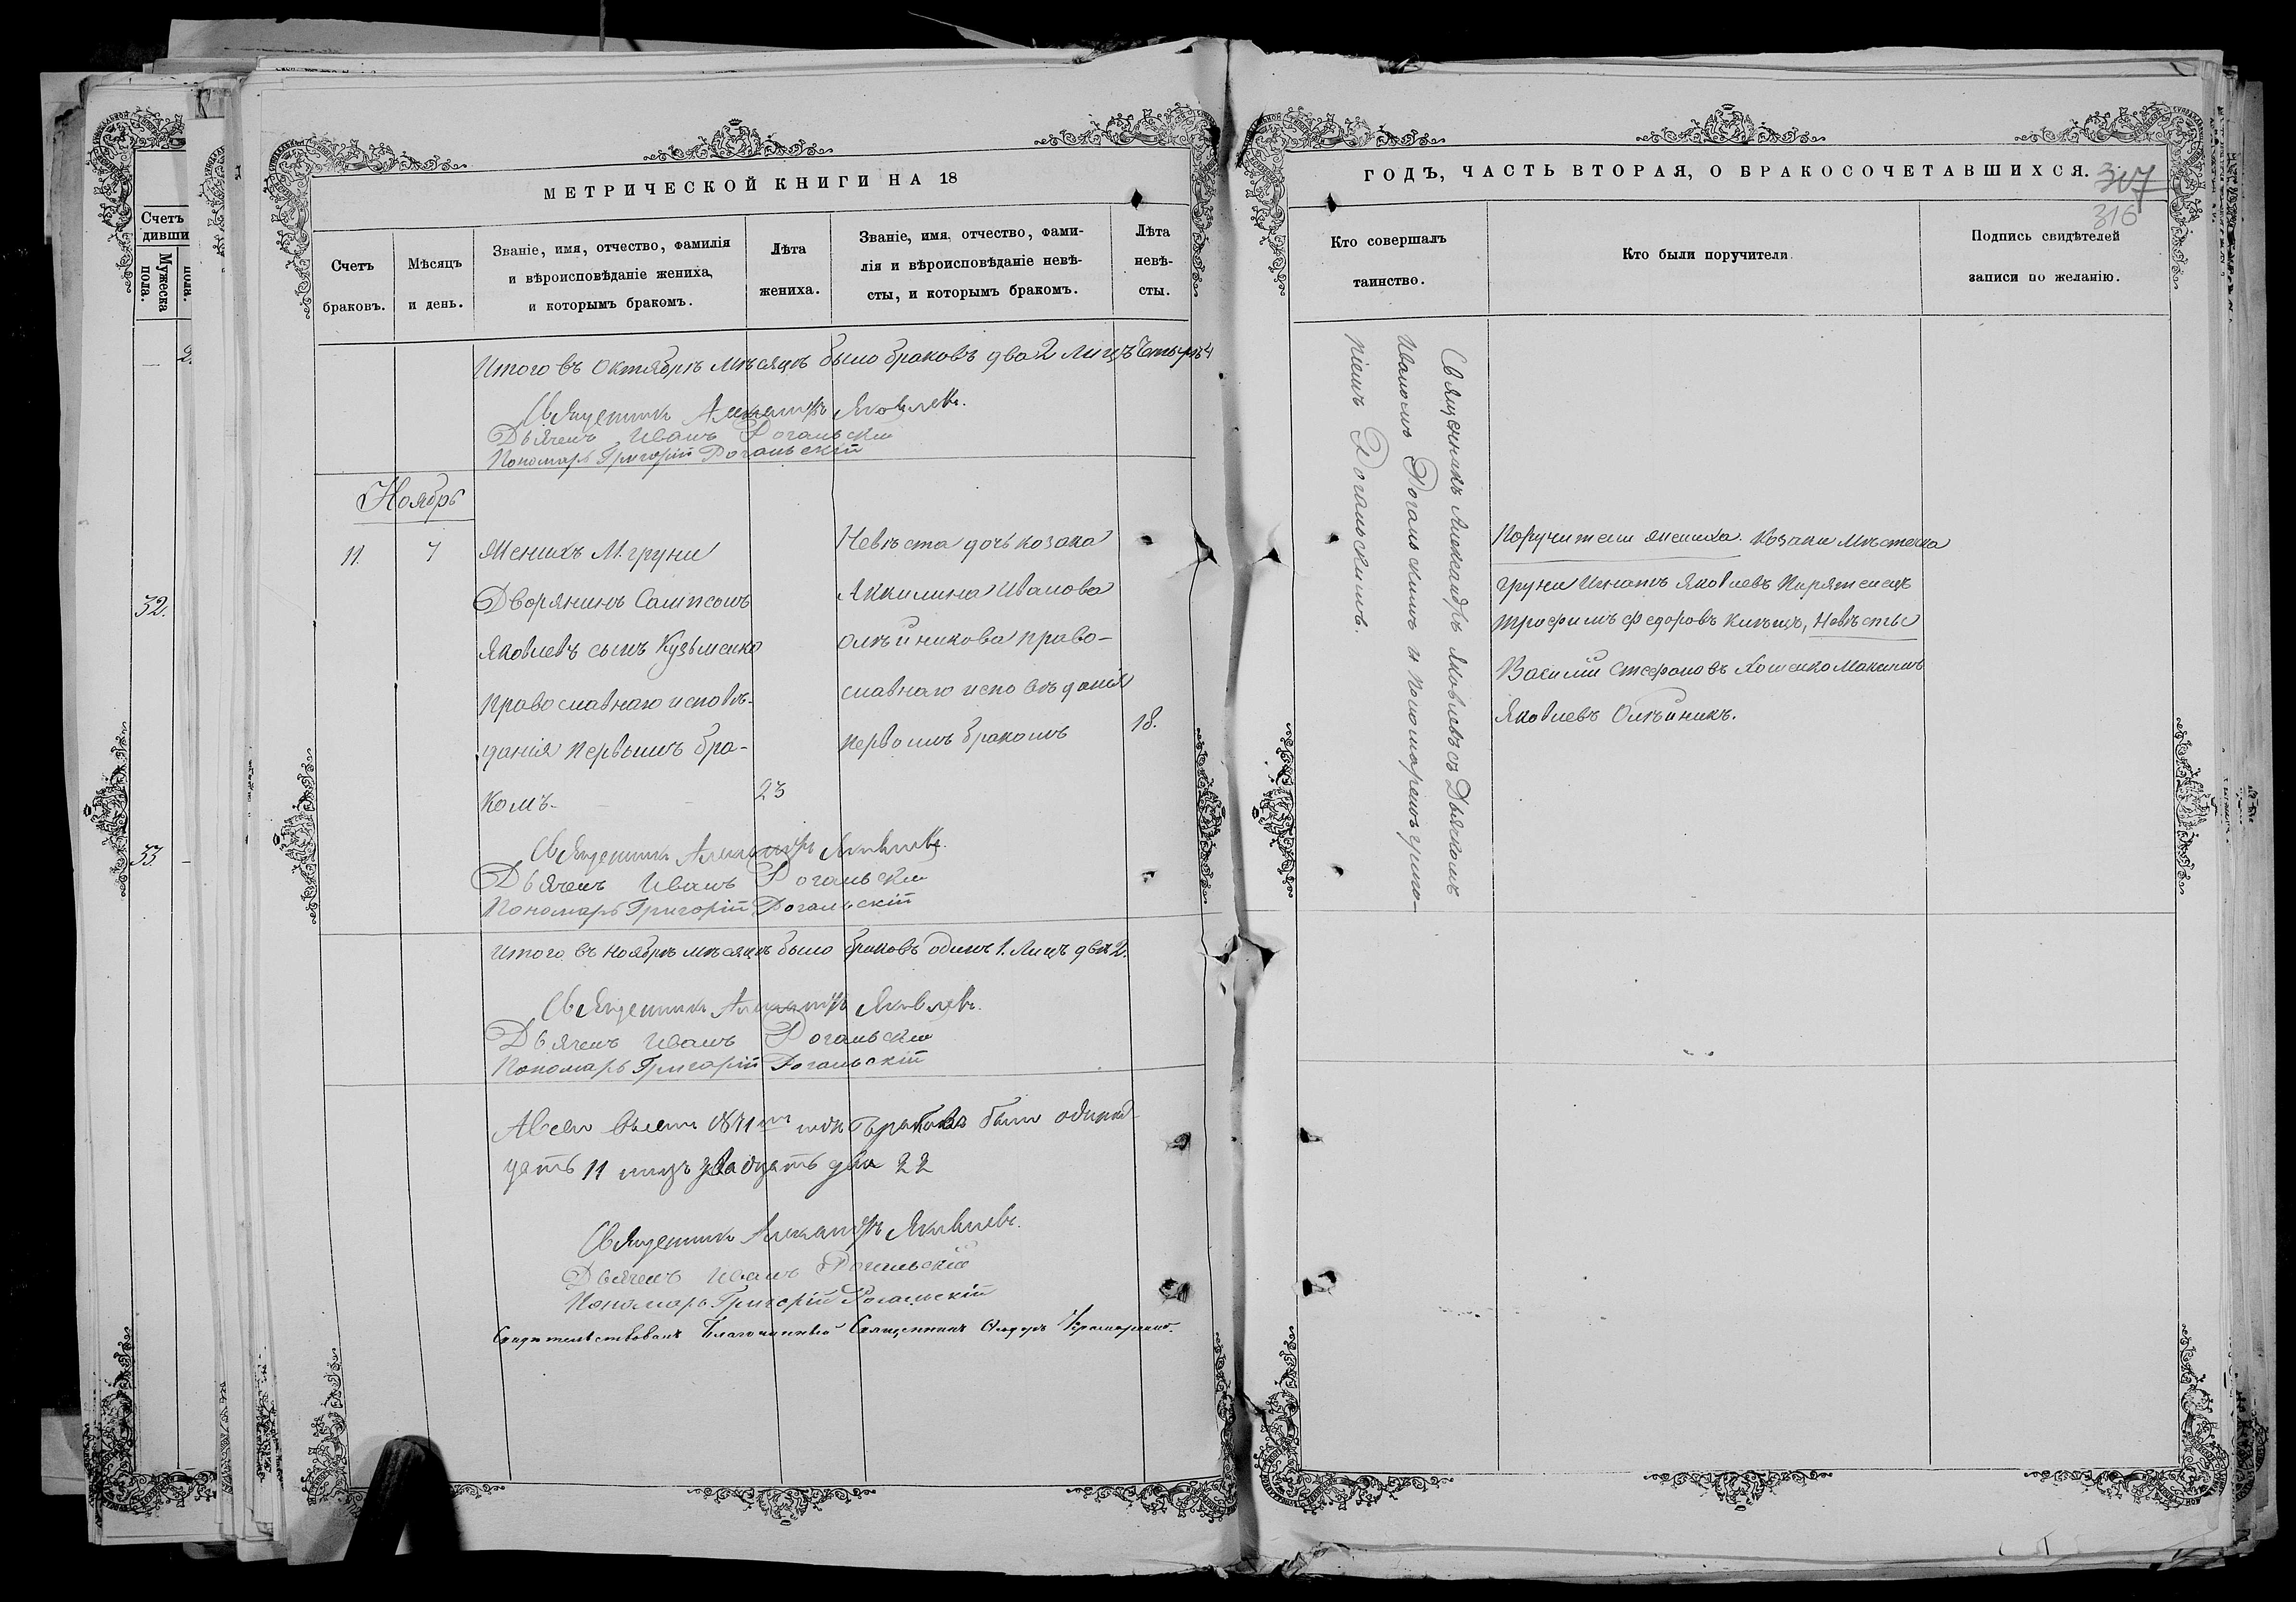 МЕТРИЧЕСКОЙ КНИГИ НА 18
Счетъ браковъ.
Мѣсяцъ и день.
Званіе, имя, отчество, фамилія
и вѣроисповѣданіе жениха,
и которымъ бракомъ.
Лѣта
жениха.
Званіе, имя, отчество, фами-
лія и вѣроисповѣданіе невѣ-
сты, и которымъ бракомъ.
Лѣта
невѣ-
сты.
Итого въ Октябрѣ мѣсяцѣ было браковъ два 2 лицъ четыре 4
Священникъ Александръ Яковлевъ.
Дьячекъ Иванъ Рогальскій
Пономарь Григорій Рогальскій
Ноябрь
11.
7
Женихъ М. Груни
Дворянинъ Сампсонъ
Яковлевъ сынъ Кузьменко
православнаго исповѣ-
данія первымъ бра-
комъ-
23
Невѣста дочь козака
Акилина Иванова
Олѣйникова право-
славнаго исповѣданія
первымъ бракомъ
18.
Священникъ Александръ Яковлевъ.
Дьячекъ Иванъ Рогальскій
Пономарь Григорій Рогальскій
Итого въ Ноябрѣ мѣсяцѣ было браковъ одинъ 1. лицъ двѣ 2.
Священникъ Александръ Яковлевъ.
Дьячекъ Иванъ Рогальскій
Пономарь Григорій Рогальскій
А всего въ семъ 1871мъ году браковъ было одинад-
цать 11 лицъ двадцать два 22
Священникъ Александръ Яковлевъ.
Дьячекъ Иванъ Рогальскій
Пономарь Григорій Рогальскій
Свидетельствовалъ Благочинный Священникъ Ѳеодоръ
ГОДЪ, ЧАСТЬ ВТОРАЯ, О БРАКОСОЧЕТАВШИХСЯ.
317
316
Кто совершалъ
таинство.
Кто были поручители.
Подпись свидѣтелей
записи по желанію.
Священникъ Александръ Яковлевъ съ Дьячкомъ
Иваномъ Рогальскимъ и пономаремъ Григо-
ріемъ Рогальскимъ.
Поручители жениха. Козаки мѣстечка
Груни Игнатъ Яковлевъ
Трофимъ Федоровъ Невѣсты
Василій Стефановъ Максимъ
Яковлевъ Олѣйникъ.
Счетъ
дивши
Мужеска
пола.
пола.
2.
32.
33